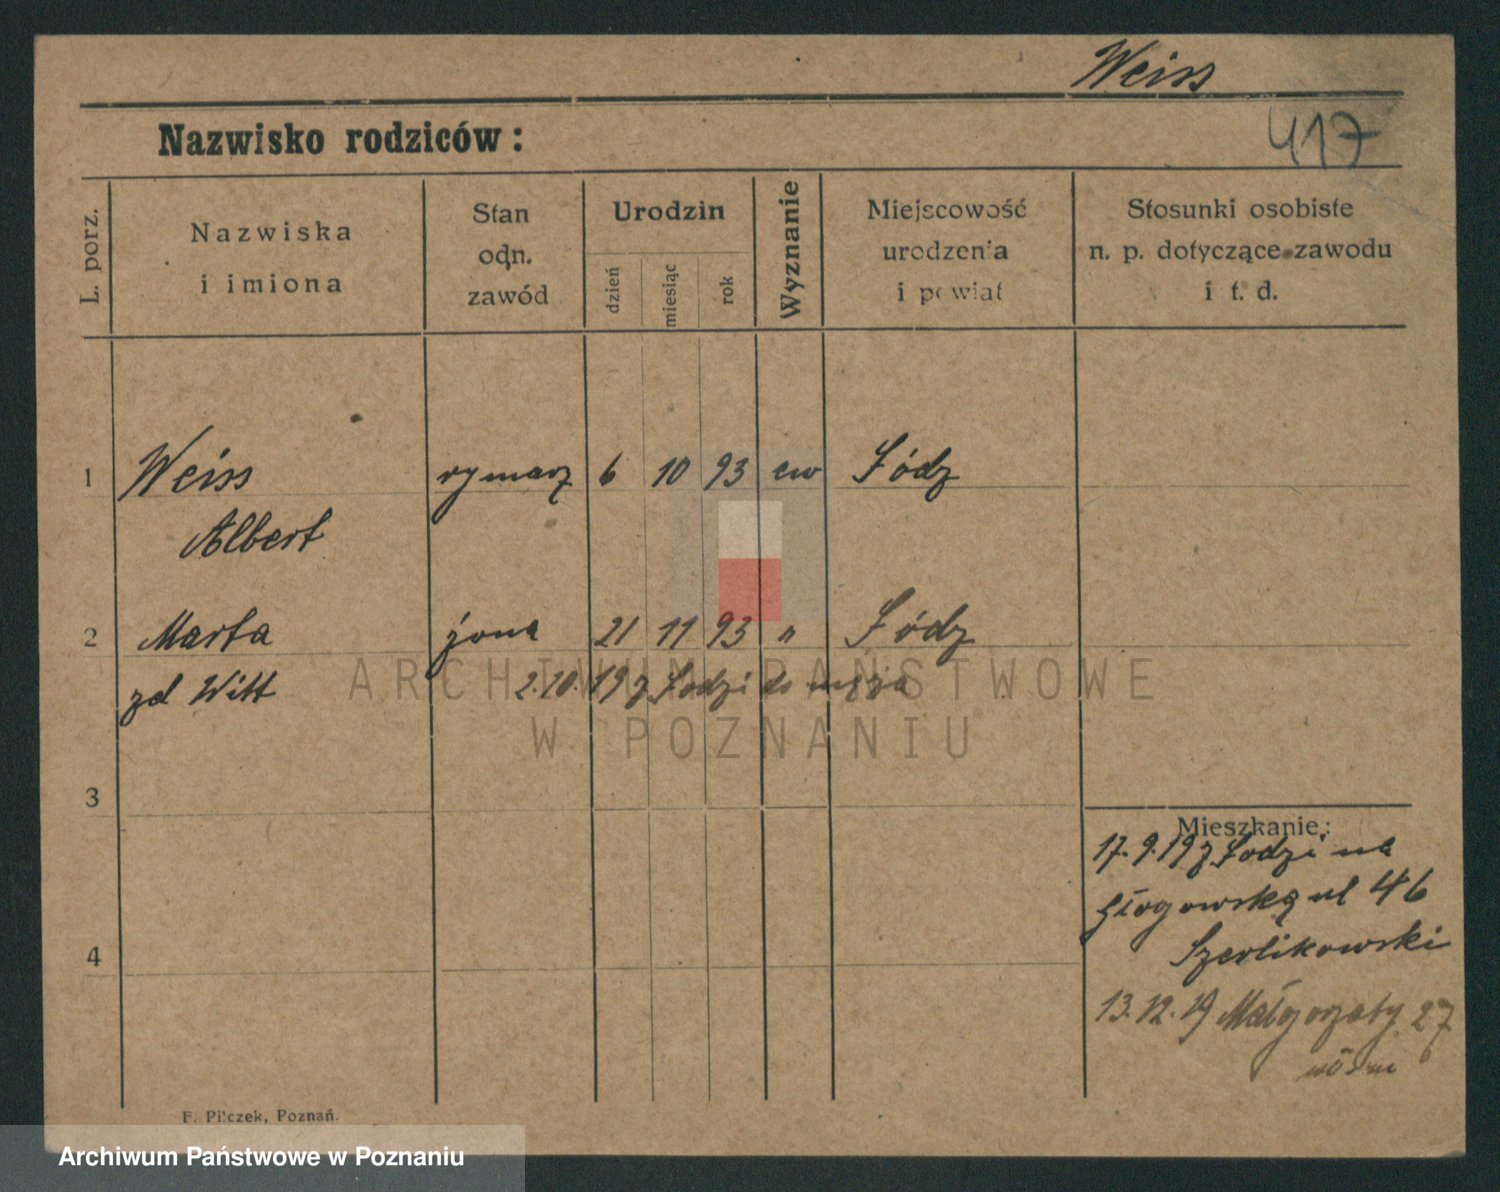 Weiss
Nazwisko rodziców:
417
L. porz.
Nazwiska
i imiona
Stan
odn.
zawód
Urodzin
dzień
miesiąc
rok
Wyznanie
Miejscowość
urodzenia
i powiat
Stosunki osobiste
n. p. dotyczące zawodu
i t. d.
1 Weiss rymarz 6 10 93 ew Łódz
Albert
2 Marta żona 21 11 93 " Łódz
zd Witt 2.10.19 z Łodzi do męża
ARCHIWUM PAŃSTWOWE
W POZNANIU
3
Mieszkanie:
17.9.19 z Łodzi na
Głogowską ul 46
4
Szerlikowski
13.12.19 Małgorzaty 27
F. Pilczek, Poznań.
Archiwum Państwowe w Poznaniu